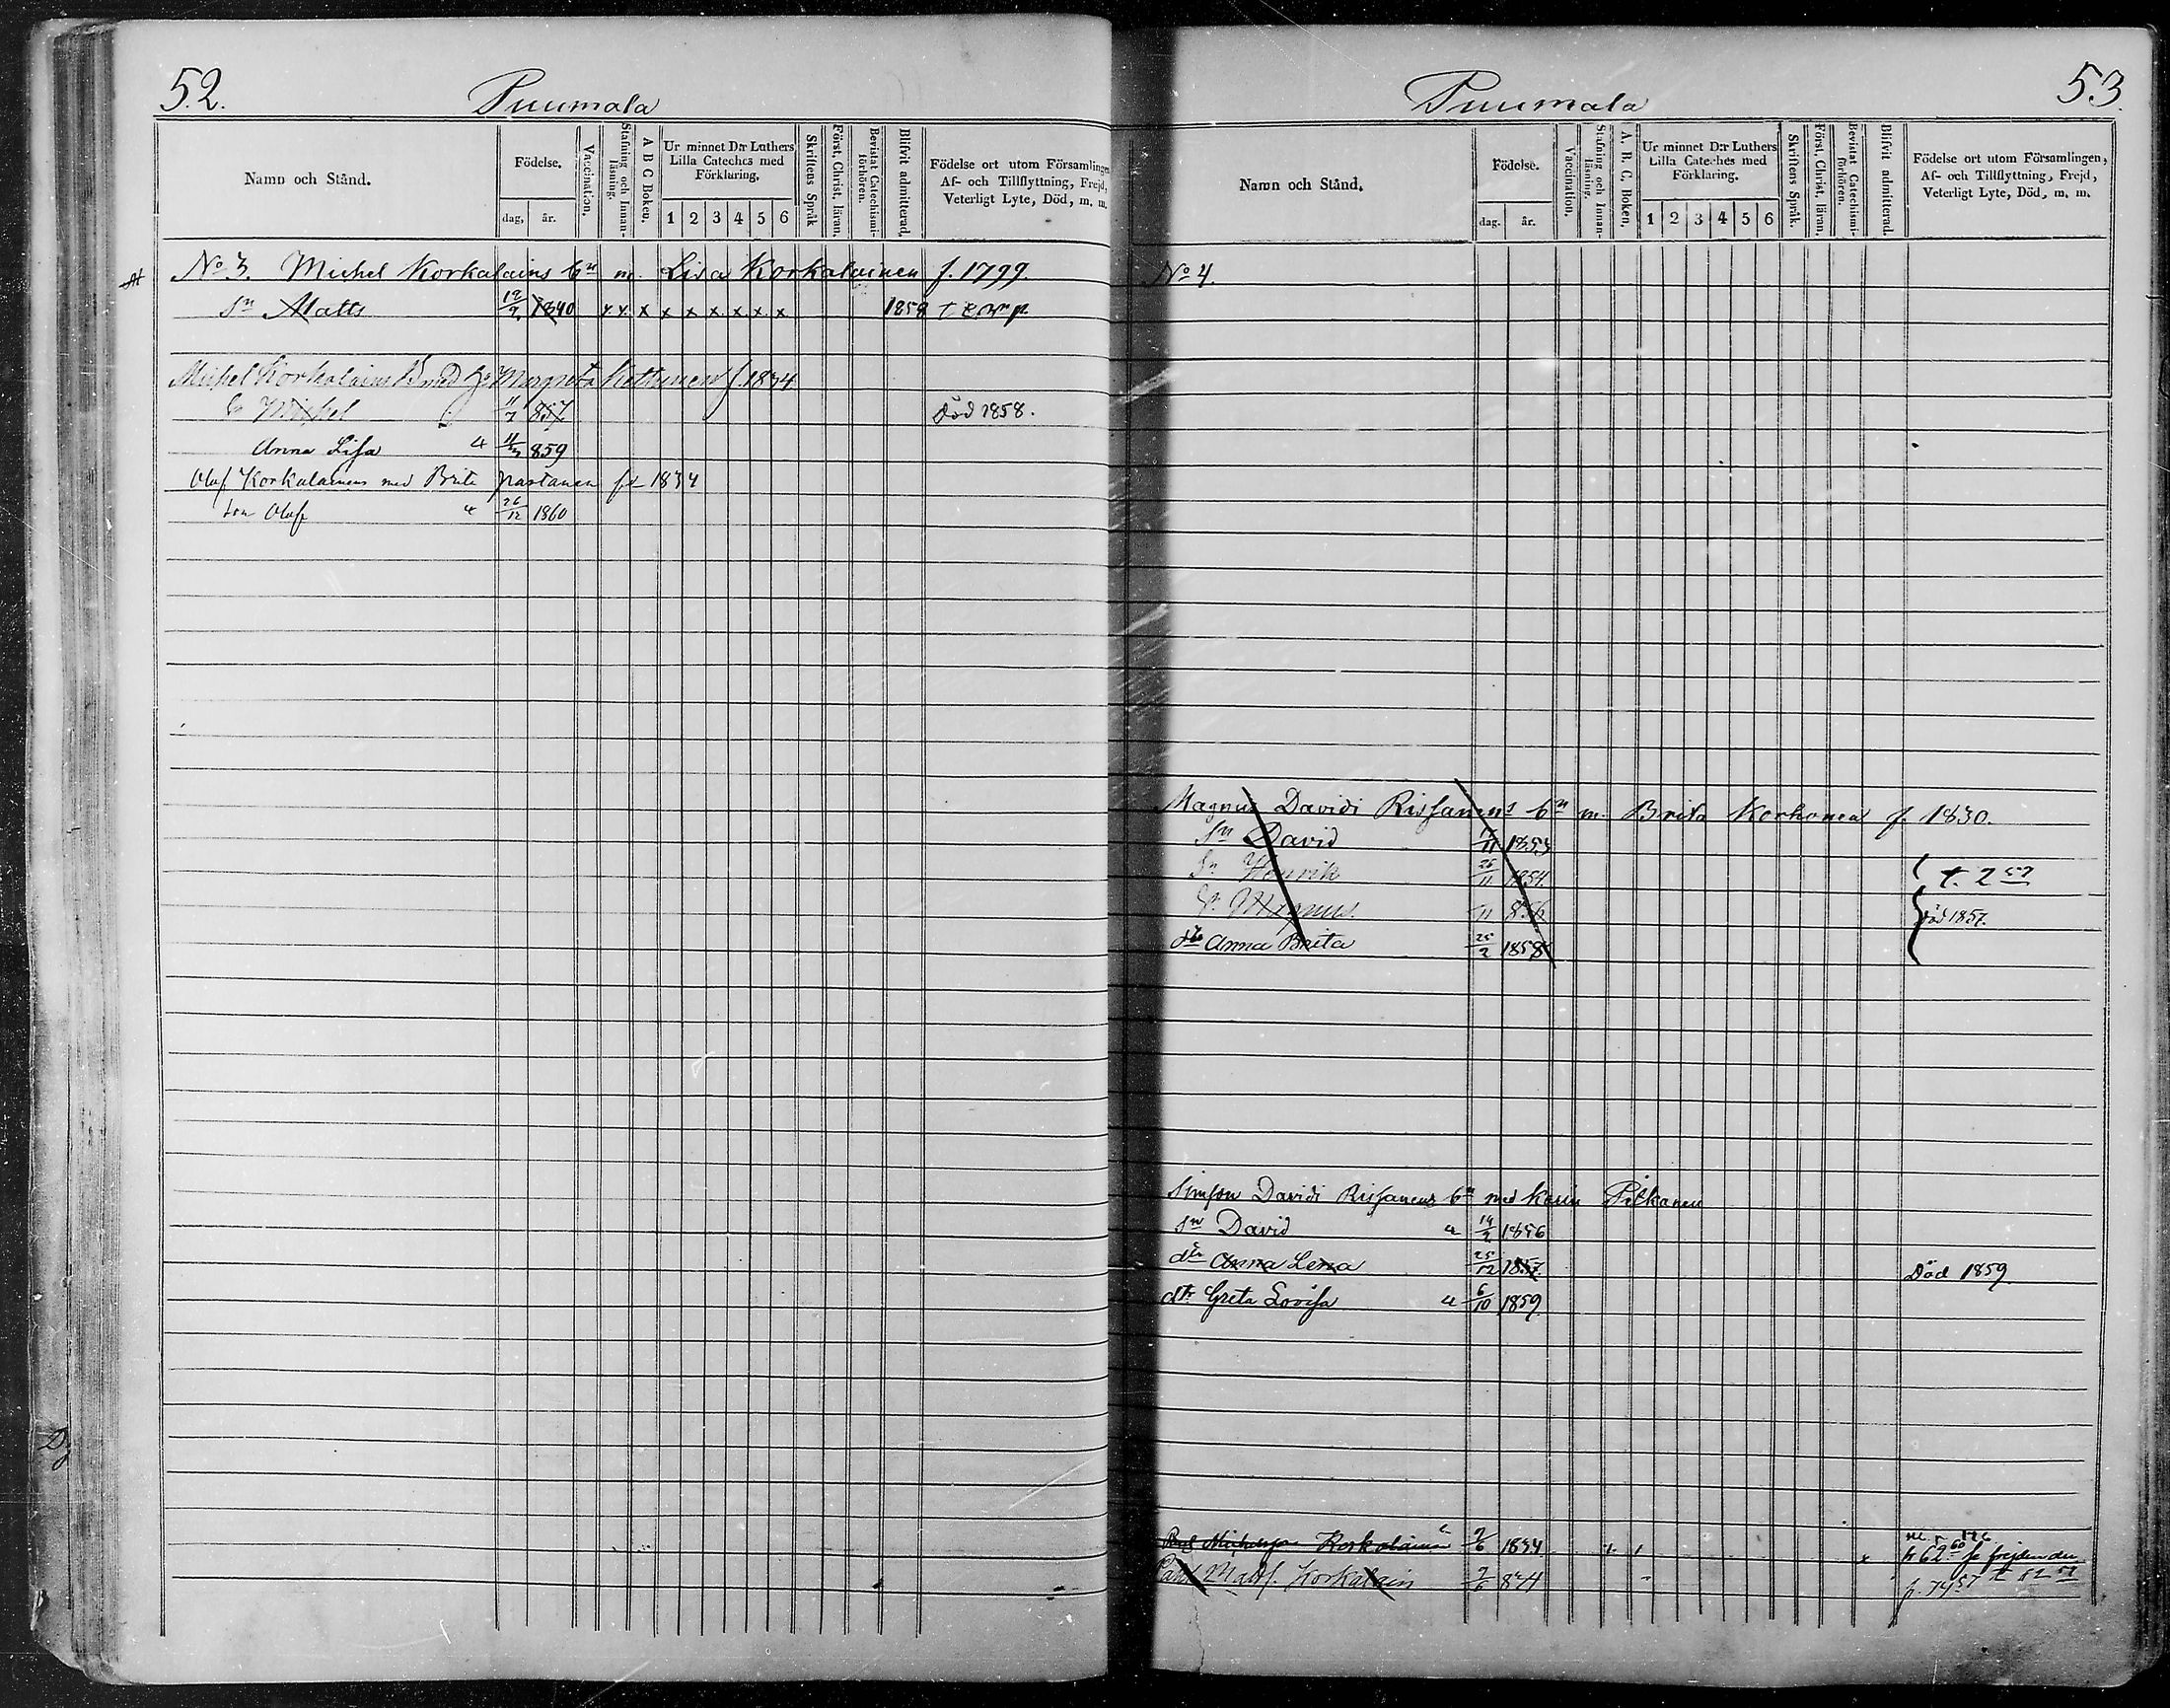 52.
Puumala
Namn och Stånd.
Födelse.
dag, år.
Vaccination.
Stafning och Innan-läsning.
A B C Boken.
Ur minnet D:r Luthers Lilla Cateches med Förklaring.
1 2 3 4 5 6
Skriftens Språk
Först. Christ. läran.
Bevistat Catechismi-förhören.
Blifvit admitterad.
Födelse ort utom Församlingen, Af- och Tillflyttning, Frejd, Veterligt Lyte, Död, m. m.
No 3. Michel Korkalains bn m. Lisa Korkalainen f. 1799.
Sn Matts 12/2 1840 x x x x x x x x x 1858
Michel Korkalains med Margreta Kettunen f. 1834
Sn Michel 11/7 857 död 1858.
Anna Lisa 859
Oluf Korkalainens med Brita Partanen 1834
son Oluf 26/12 1860
53.
Puumala
Namn och Stånd.
Födelse.
dag. år.
Vaccination.
Stafning och Innan-läsning.
A. B. C. Boken.
Ur minnet D:r Luthers Lilla Cateches med Förklaring.
1 2 3 4 5 6
Skriftens Språk.
Först. Christ. läran.
Bevistat Catechismi-förhören.
Blifvit admitterad.
Födelse ort utom Församlingen, Af- och Tillflyttning, Frejd, Veterligt Lyte, Död, m. m.
No 4.
Magnus Davidi Rissanens bn m. Brita Korhonen f. 1830.
Sn David 1853
Sn Henrik 26/11 1854
Sn Magnus 11 856 död 1857.
dtr Anna Brita 25/2 1858
Simson Davidi Rissanens bn med Karin Pitkänen
Sn David 14/2 1856
dtr Anna Lena 25/12 1857. Död 1859
dtr Greta Lovisa 6/10 1859
Korkalainen 1834
Matts. Korkalain